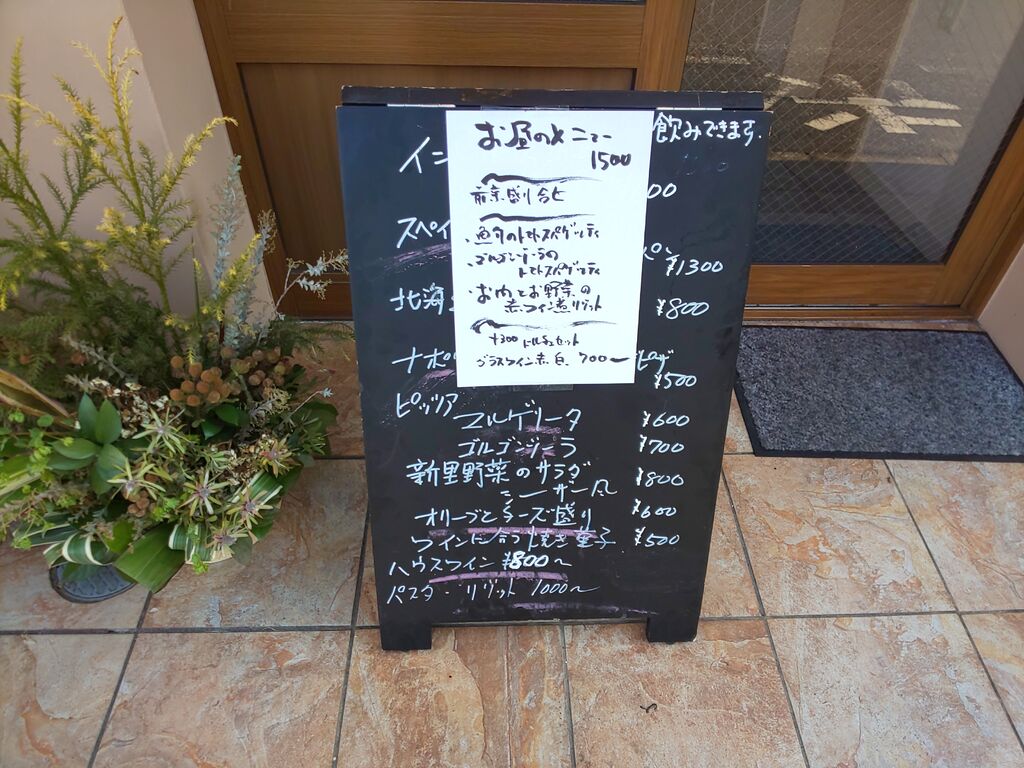 飲みできます.
イン
00
お昼のメニュー
1500
前菜盛り合せ
・魚介のトマトスパゲッティ
・ゴルゴンゾーラの
トマトスパゲッティ
・お肉とお野菜の
赤ワイン煮リゾット
+300 ドルチェセット
グラスワイン赤白 700〜
スペイ
¥1300
北海
¥800
ナポ
¥500
ピッツァ
マルゲリータ ¥600
ゴルゴンゾーラ ¥700
新里野菜のサラダ ¥800
シーザー風
オリーブとチーズ盛り ¥600
ワインに合う焼き菓子 ¥500
ハウスワイン ¥800〜
パスタ・リゾット 1000〜